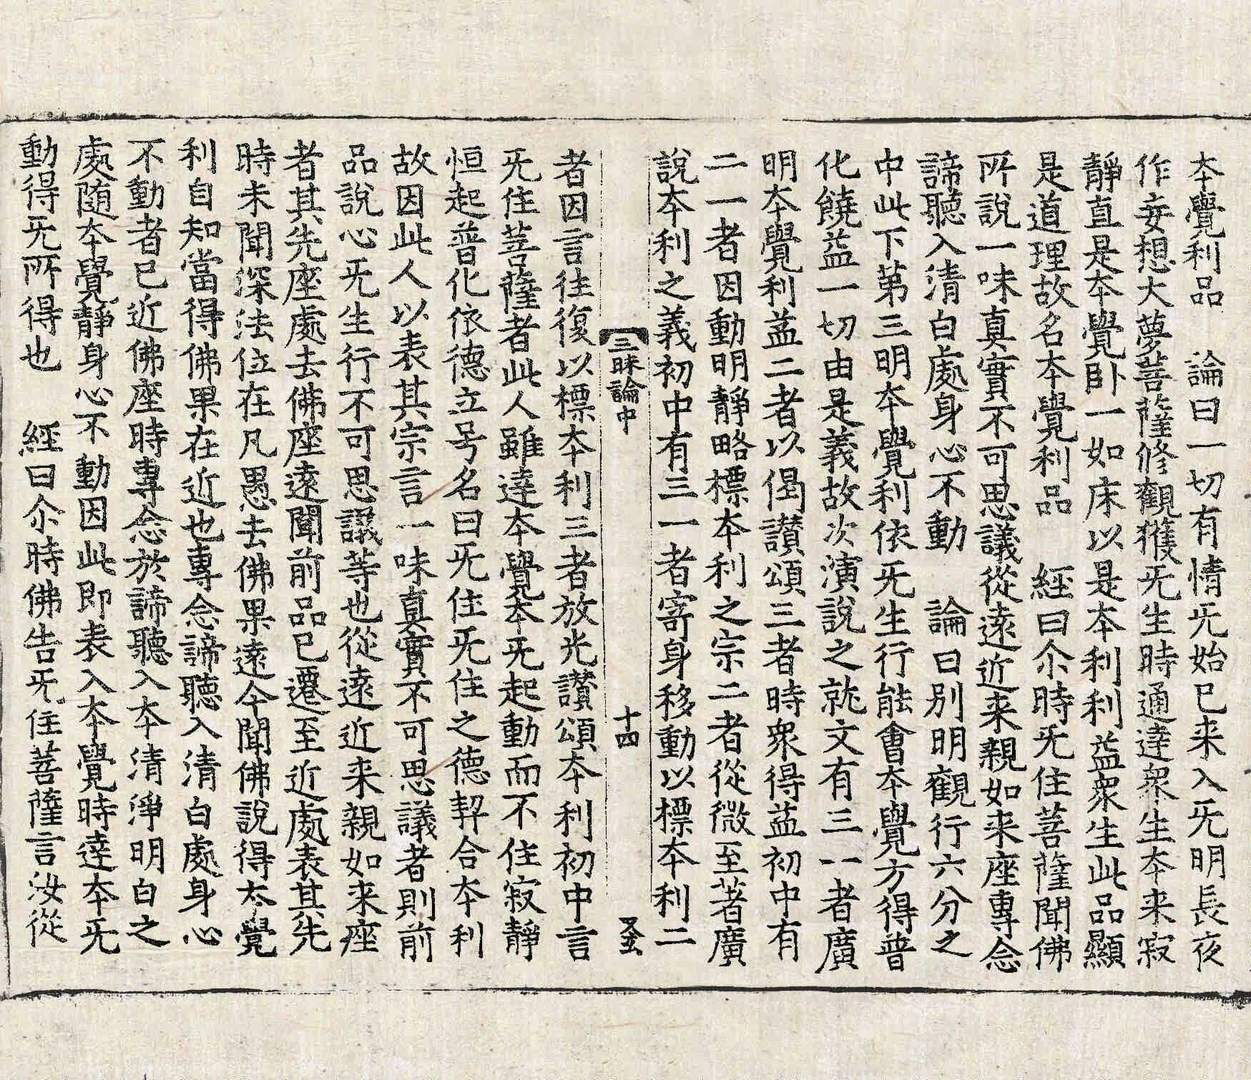 本覺利品　論曰一切有情旡始已来入旡明長夜
作妄想大夢菩薩修觀獲旡生時通達衆生本来寂
靜直是本覺卧一如床以是本利利益衆生此品顯
是道理故名本覺利品　經曰尒時旡住菩薩聞佛
所說一味真實不可思議從遠近来親如来座專念
諦聽入清白處身心不動　論曰別明觀行六分之
中此下第三明本覺利依旡生行能會本覺方得普
化饒益一切由是義故次演說之就文有三一者廣
明本覺利益二者以偈讃頌三者時衆得益初中有
二一者因動明靜略標本利之宗二者從微至著廣
說本利之義初中有三一者寄身移動以標本利二
三昧論中　十四
者因言往復以標本利三者放光讃頌本利初中言
旡住菩薩者此人雖達本覺本旡起動而不住寂靜
恒起普化依德立号名曰旡住旡住之德契合本利
故因此人以表其宗言一味真實不可思議者則前
品說心旡生行不可思議等也從遠近来親如来座
者其先座處去佛座遠聞前品已遷至近處表其先
時未聞深法位在凡愚去佛果遠今聞佛說得本覺
利自知當得佛果在近也專念諦聽入清白處身心
不動者已近佛座時專念於諦聽入本清淨明白之
處随本覺靜身心不動因此即表入本覺時達本旡
動得旡所得也　經曰尒時佛告旡住菩薩言汝從